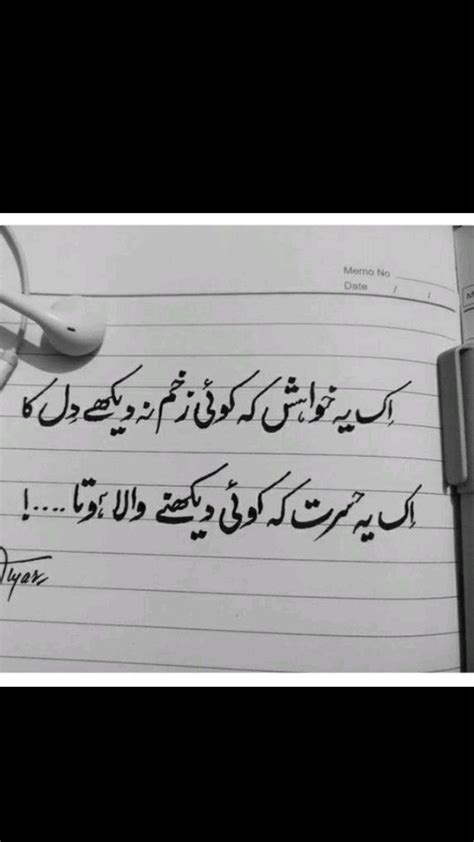 Memo No
Date / /
اِک یہ خواہش کہ کوئی زخم نہ دیکھے دِل کا
اِک یہ حسرت کہ کوئی دیکھنے والا ہوتا ....!